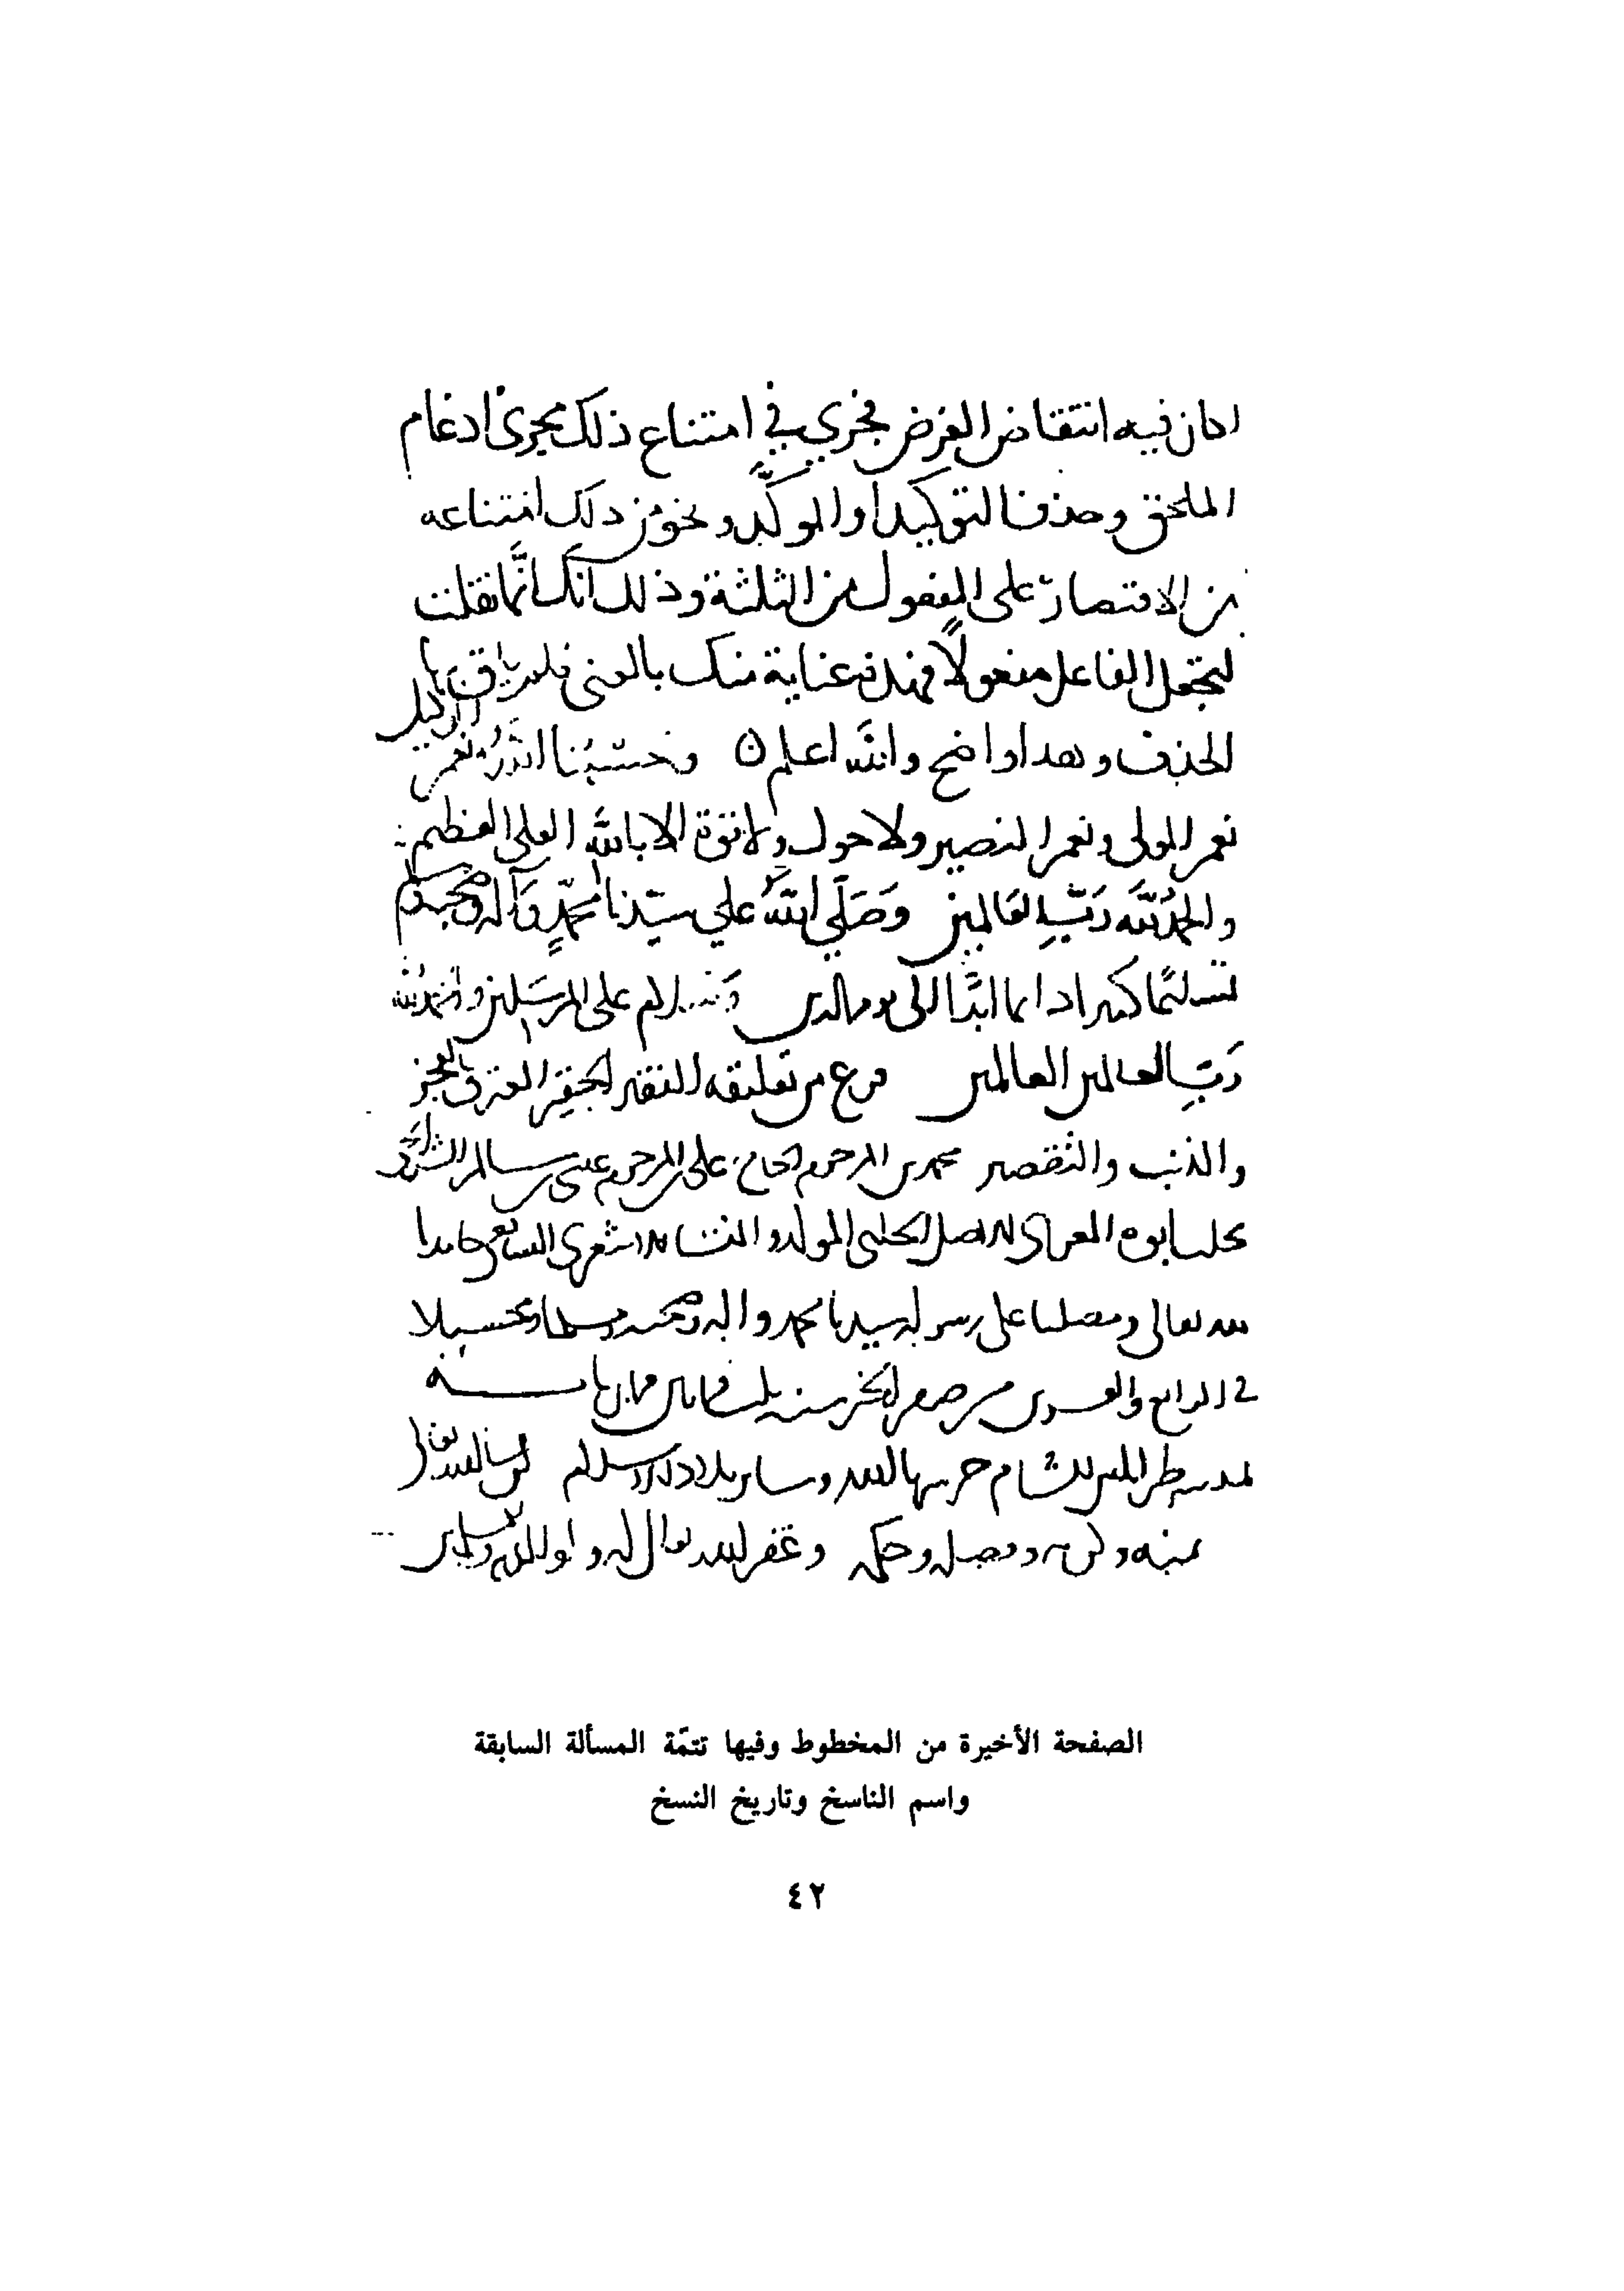 اذا كان فيه انتقاض الغرض فجرى في امتناع ذلك مجرى ادغام
الملحق وحذف التوكيد او الموكد ونحو من ذلك امتناعه
من الاقتصار على المفعول من الثلثة وذلك انك انما نقلت
لتجعل الفاعل مفعولا فهذه عناية منك بالمعنى فلم
الحذف وهذا واضح والله اعلم وحسبنا الله ونعم الوكيل
نعم المولى ونعم النصير ولا حول ولا قوة الا بالله العلى العظيم
والحمد لله رب العالمين وصلي الله علي سيدنا محمد وآله وصحبه وسلم
تسليما كثيرا دايما ابدا الى يوم الدين وسلام على المرسلين والحمد لله
رب العالمين العالمين فرغ من تعليقه الفقير الحقير المعترف بالعجز
والذنب والتقصير محمد بن المرحوم الحاج على بن المرحوم عيسى بن سالم
الاصل الحلبى المولد والمنشا الاشعرى الشافعى حامدا
لله تعالى ومصليا على رسوله سيدنا محمد واله وصحبه ومسلما
في الرابع والعشرين من صفر الخير سنة ثلث وثمانين وثمان ماية
بمدينة طرابلس الشام حرسها الله وساير بلاد الاسلام الله تعالى
بمنه وكرمه وفضله وحكمه وغفر الله تعالى له ولوالديه
الصفحة الأخيرة من المخطوط وفيها تتمّة المسألة السابقة
واسم الناسخ وتاريخ النسخ
٤٢